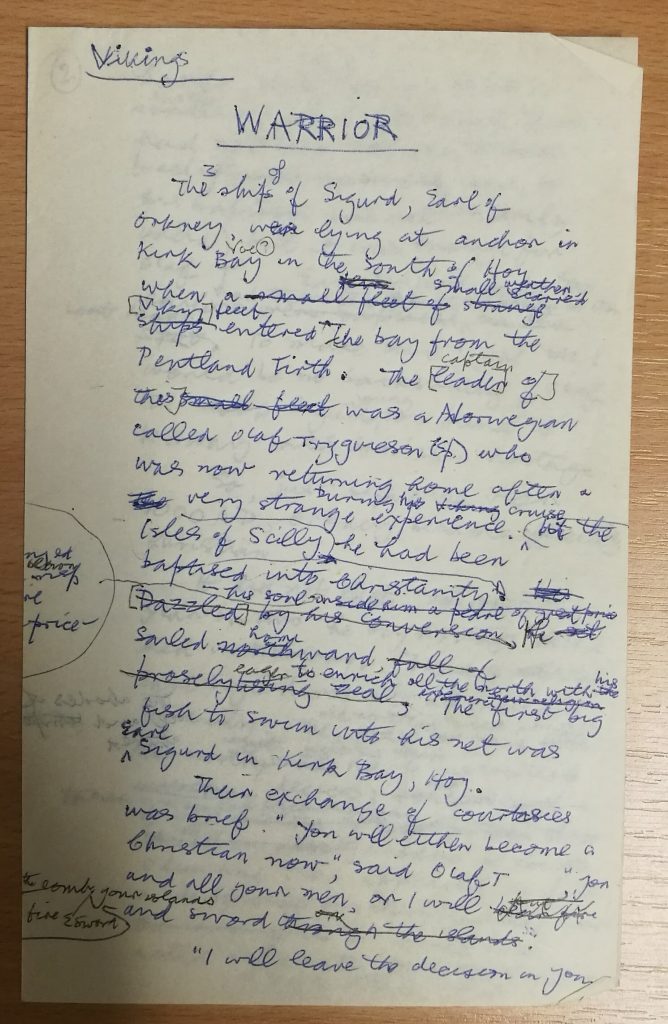 2
Vikings
WARRIOR
The 3 ships of of Sigurd, Earl of
Orkney, were lying at anchor in
Kirk Bay Voe? in the South of Hoy
small weather
when a small fleet of strange scarred
Viking fleet
ships entered the bay from the
captain
Pentland Firth. The [leader of]
this small fleet was a Norwegian
called Olaf Trygvieson (sp.) who
was now returning home after a
very strange experience. During his viking cruise
but the
Isles of Scilly, he had been
baptised into Christianity. His
his soul inside him a pearl of great price
[Dazzled] by his conversion, He set
home
sailed northward, full of
eager to enrich all the north with his
proselytising zeal, The first big
fish to swim into his net was
Earl
Sigurd in Kirk Bay, Hoy.
Their exchange of courtesies
was brief. "You will either become a
Christian now", said Olaf T, "you
and all your men, or I will
fire
and sword through the islands."
price
the comb your islands
fire & sword
"I will leave the decision in you